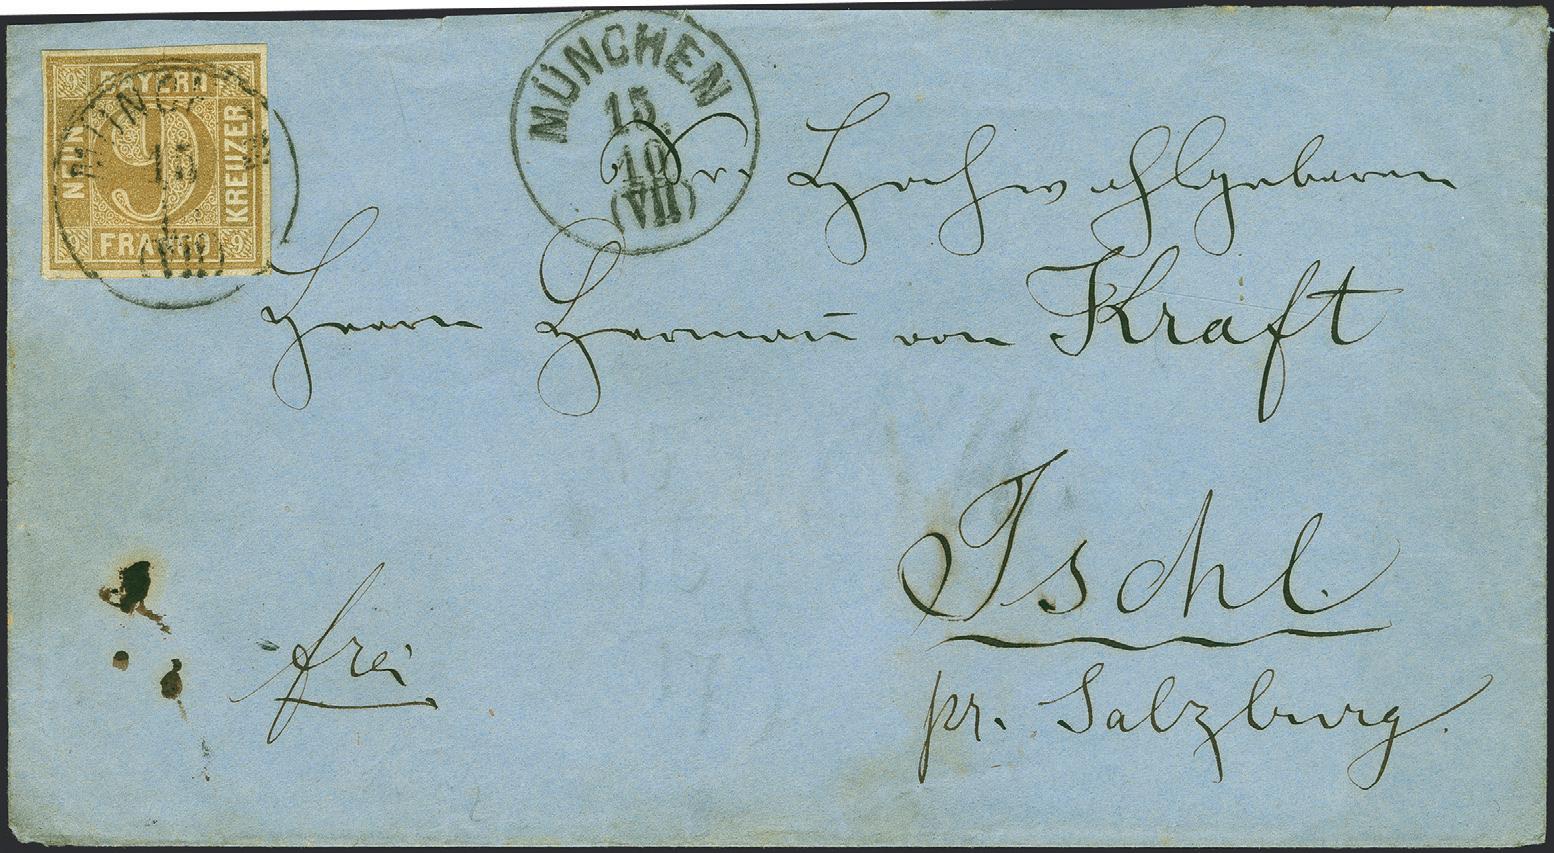 BAYERN
NEUN
KREUZER
FRANCO
9
9 9 9 9
MÜNCHEN
15
10
(VII)
MÜNCHEN
15
(VII)
Hochwohlgeboren
Herrn Herman̄ von Kraft
Ischl.
frei.
pr. Salzburg.